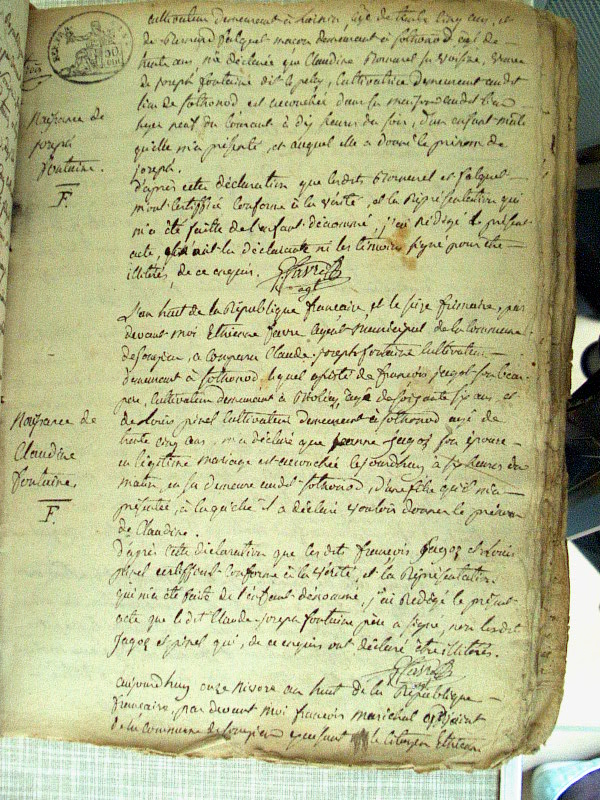 cultivateur demeurant à agé de trente cinq ans, et
de Bernard Falquet macon demeurant à Sothonod agé de
trente ans m'a déclarée que Claudine sa voisine, veuve
de Joseph fontaine dit cultivatrice demeurant audit
lieu de Sothonod est accouchée dans sa maison audit lieu
neuf du Courant à dix heures du soir, d'un enfant male
qu'elle m'a présenté, et auquel elle a donné le prénom de
Joseph.
D'après cette déclaration que lesdits et falquet
m'ont certiffié conforme à la vérité, et la Représentation qui
m'a été faitte de l'enfant dénommé, j'ai Rédigé le présent
acte, n'ont la déclarante ni les témoins signé pour être
illitérés, de ce enquis.
agt
Naissance de
Joseph
fontaine.
F.
L'an huit de la République francaise, et le seize frimaire, par
devant moi Ethienne favre agent municipal de la Commune
de Songieu, a comparu Claude-Joseph fontaine Cultivateur
demeurant à Sothonod, lequel assisté de francois Jagoz son beau
pere, Cultivateur demeurant à agé de soixante six ans, et
de Louis pinel Cultivateur demeurant à Sothonod agé de
trente cinq ans, m'a déclaré que Jeanne Jagoz son épouse
en légitime mariage est accouchée cejourdhuy à six heures du
matin, en sa demeure audit Sothonod, d'une fille qu'il m'a
présentée, à laquelle il a déclaré vouloir donner le prénom
de Claudine.
D'après cette déclaration que lesdit françois Jagoz et Louis
pinel certiffient Conforme à la vérité, et la Réprésentation
qui m'a été faite de l'enfant dénommé, j'ai Rédigé le présent
acte que le dit Claude-Joseph fontaine père a signé, non lesdit
Jagoz et pinel qui, de ce enquis ont déclaré être illitérés.
Naissance de
Claudine
fontaine.
F.
aujourdhuy onze Nivose an huit de la République
francaise, par devant moi francois marichal adjoint
de la Commune de Songieu le Citoyen Ethienne